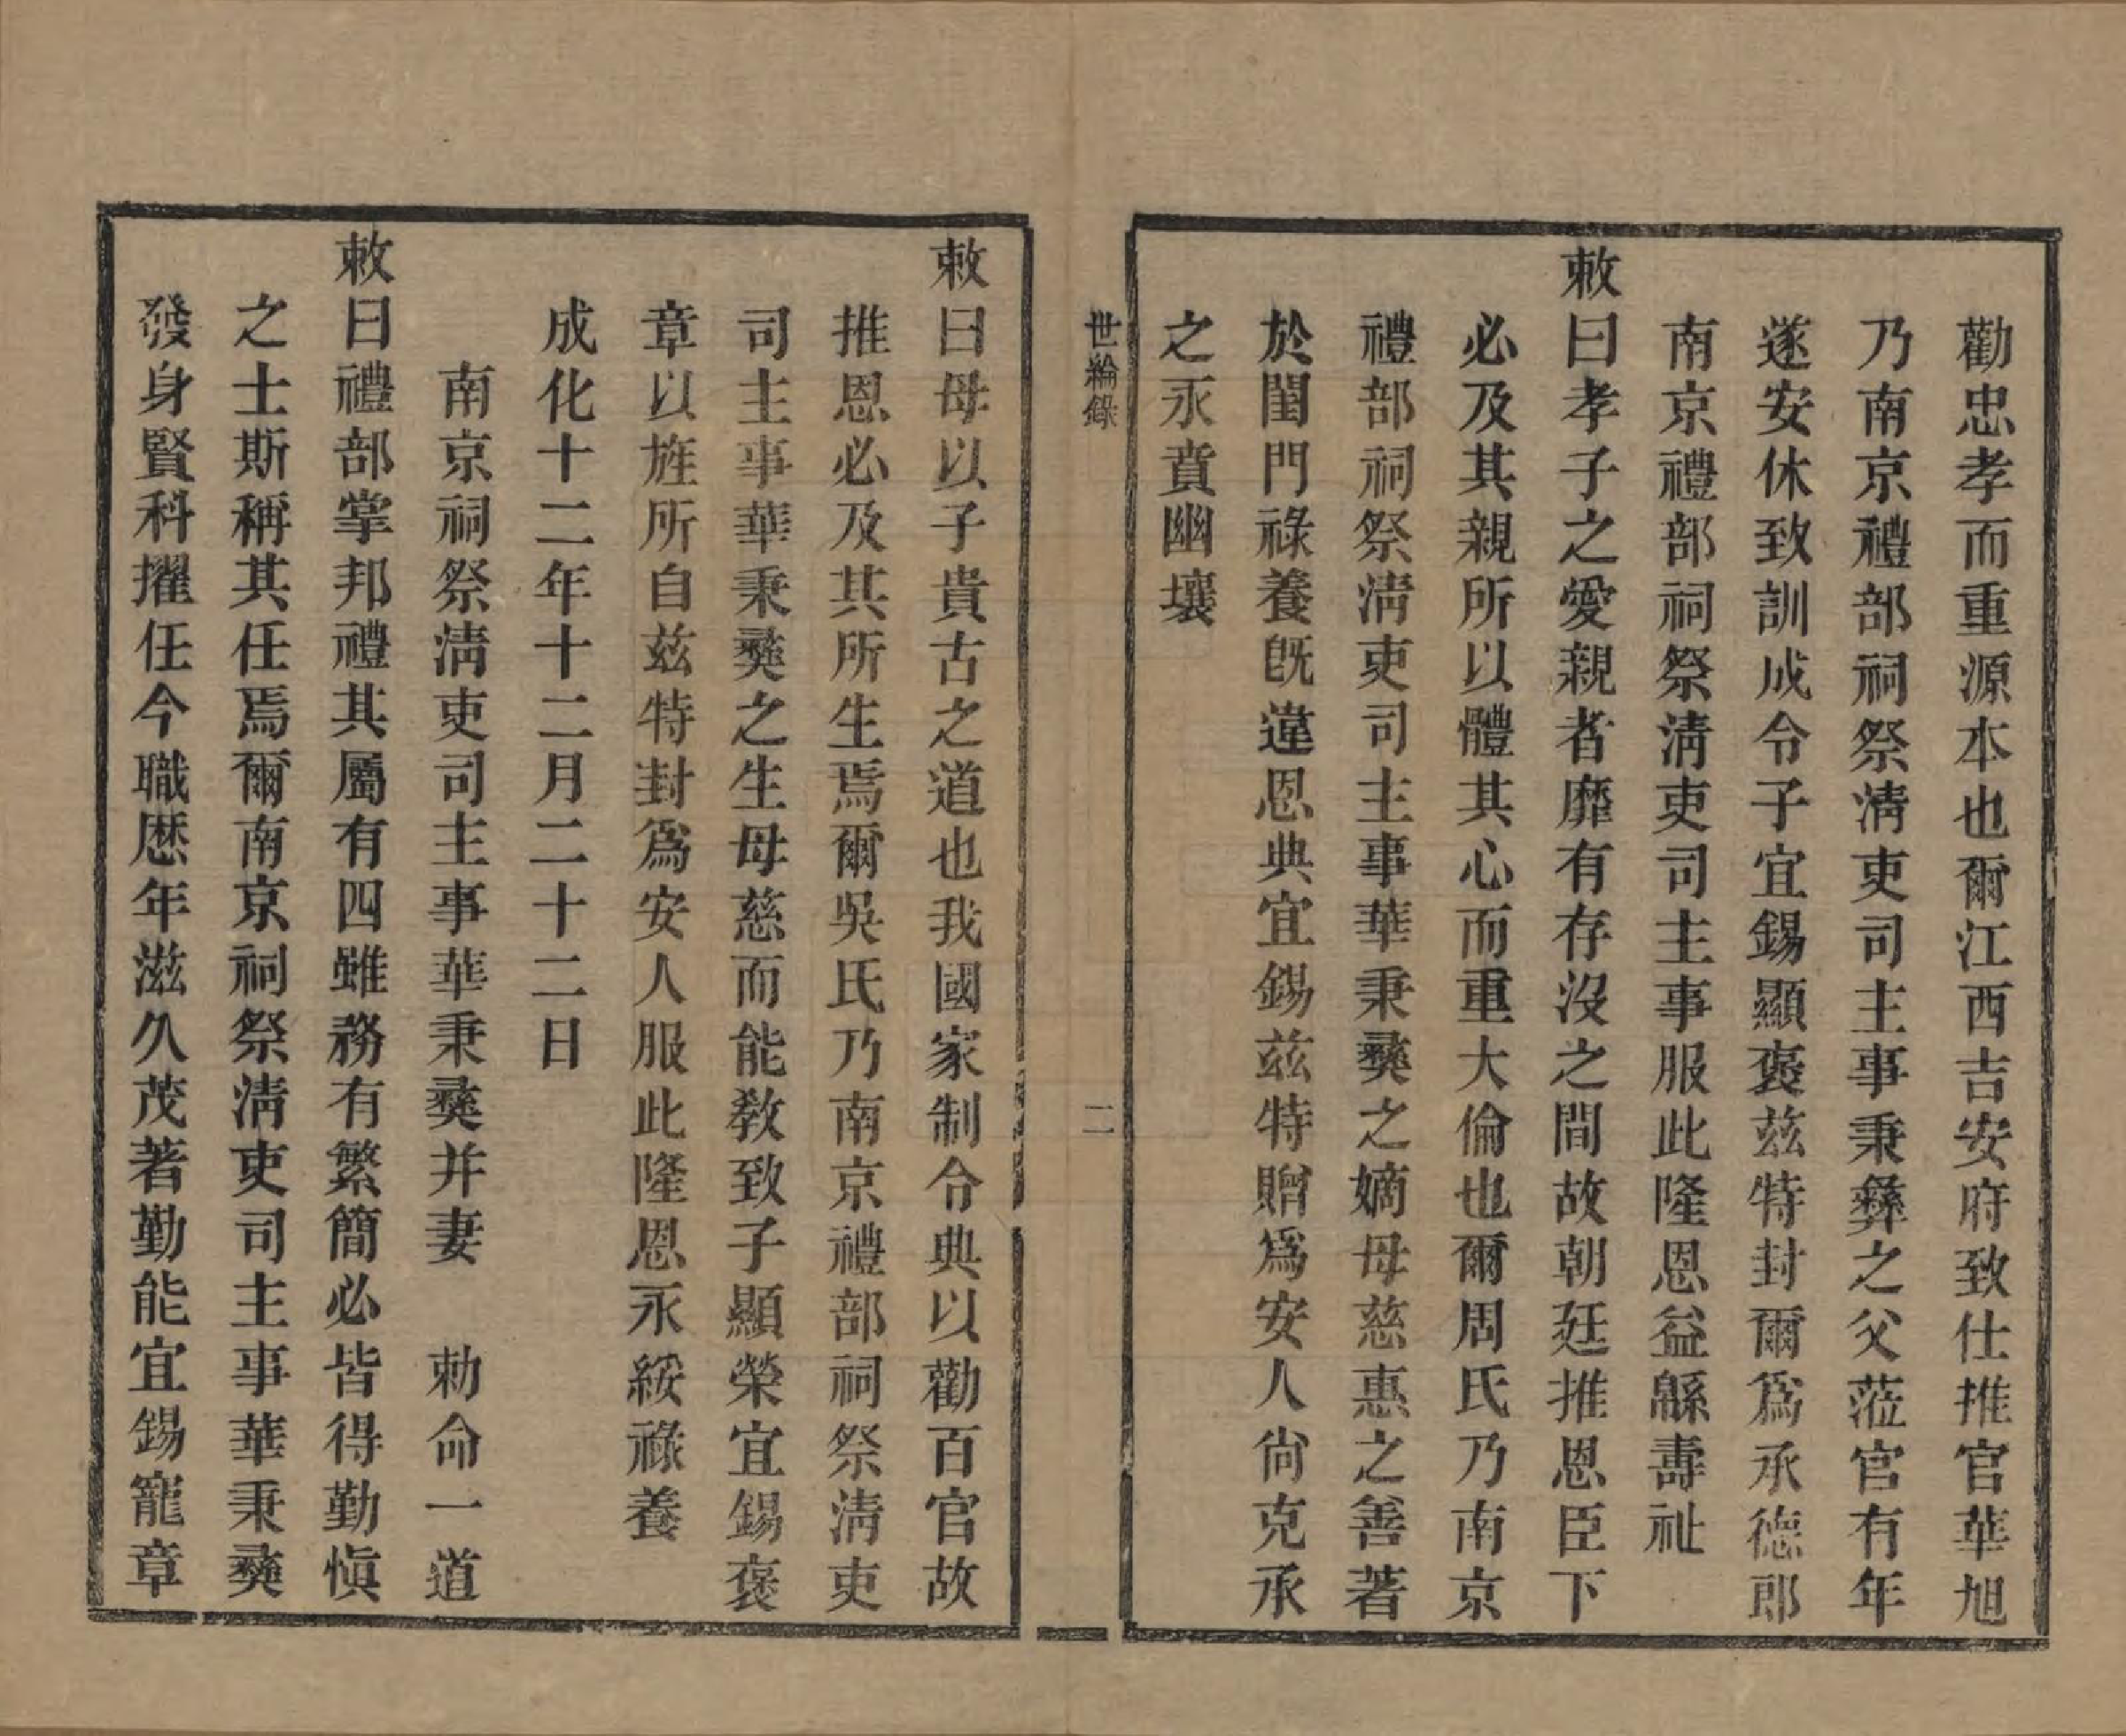 勸忠孝而重源本也爾江西吉安府致仕推官華旭
乃南京禮部祠祭清吏司主事秉彝之父蒞官有年
遂安休致訓成令子宜錫顯褒茲特封爾爲承德郎
南京禮部祠祭清吏司主事服此隆恩益緜壽祉
敕曰孝子之愛親者靡有存沒之間故朝廷推恩臣下
必及其親所以體其心而重大倫也爾周氏乃南京
禮部祠祭清吏司主事華秉彝之嫡母慈惠之善著
於閨門祿養旣違恩典宜錫茲特贈爲安人尙克承
之永賁幽壤
世綸錄
二
敕曰母以子貴古之道也我國家制令典以勸百官故
推恩必及其所生焉爾吳氏乃南京禮部祠祭清吏
司主事華秉彝之生母慈而能敎致子顯榮宜錫褒
章以旌所自茲特封爲安人服此隆恩永綏祿養
成化十二年十二月二十二日
南京祠祭清吏司主事華秉彝并妻　勅命一道
敕曰禮部掌邦禮其屬有四雖務有繁簡必皆得勤愼
之士斯稱其任焉爾南京祠祭清吏司主事華秉彝
發身賢科擢任今職歷年滋久茂著勤能宜錫寵章